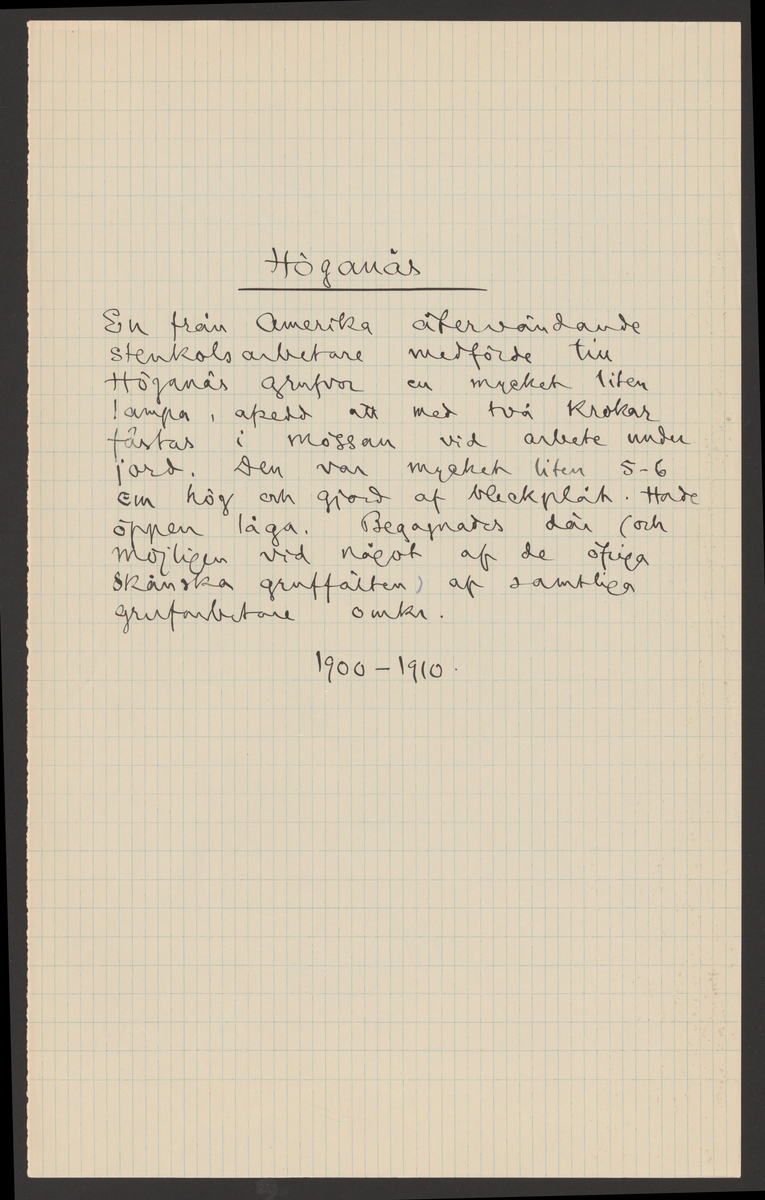 Höganäs
En från Amerika återvändande
stenkolsarbetare medförde till
Höganäs grufvor en mycket liten
lampa, afsedd att med två krokar
fästas i mössan vid arbete under
jord. Den var mycket liten 5-6
cm hög och gjord af bleckplåt. Hade
öppen låga. Begagnades där (och
möjligen vid något af de öfriga
skånska gruffälten) af samtliga
grufarbetare omkr.
1900-1910.